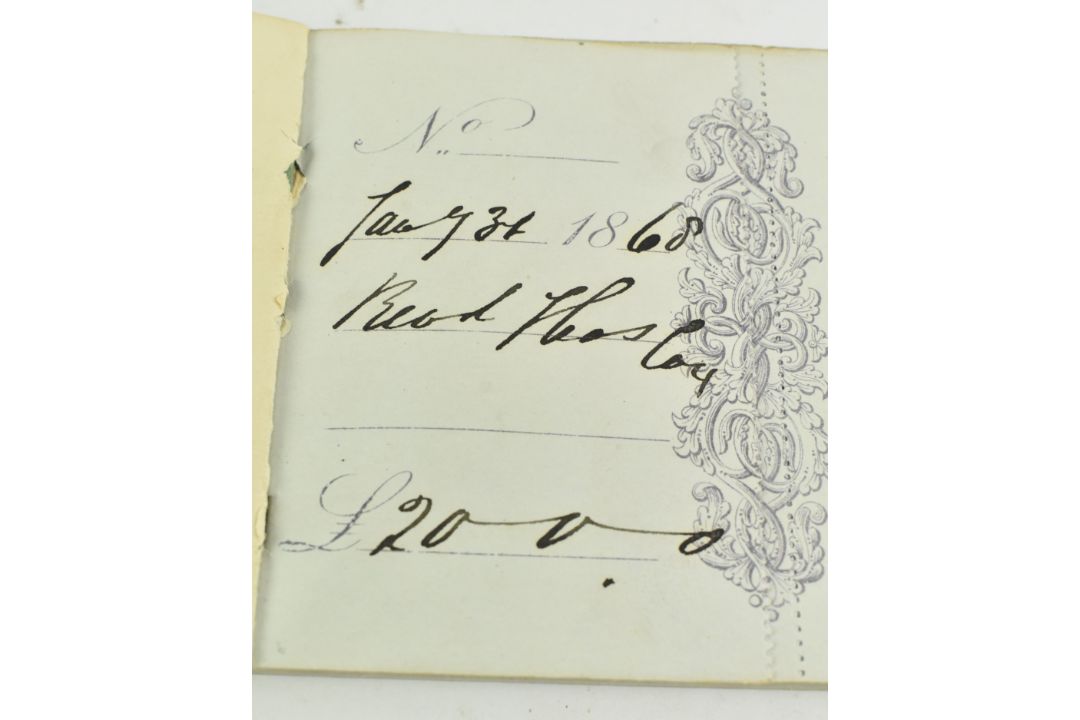 No
Jany 31 1868
Read Thos
Coy
£ 20 0 0